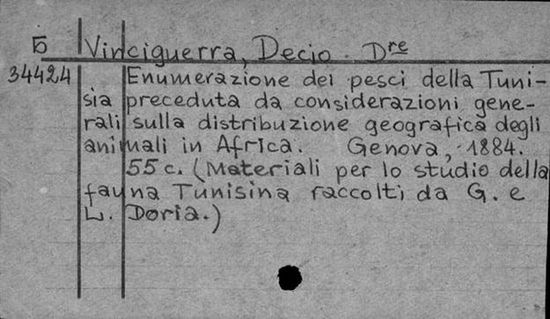 Б Vinciguerra, Decio. Dre
34424 Enumerazione dei pesci della Tuni-
sia preceduta da considerazioni gene-
rali sulla distribuzione geografica degli
animali in Africa. Genova, 1884.
55 c. (Materiali per lo studio della
fauna Tunisina raccolti da G. e
L. Doria.)